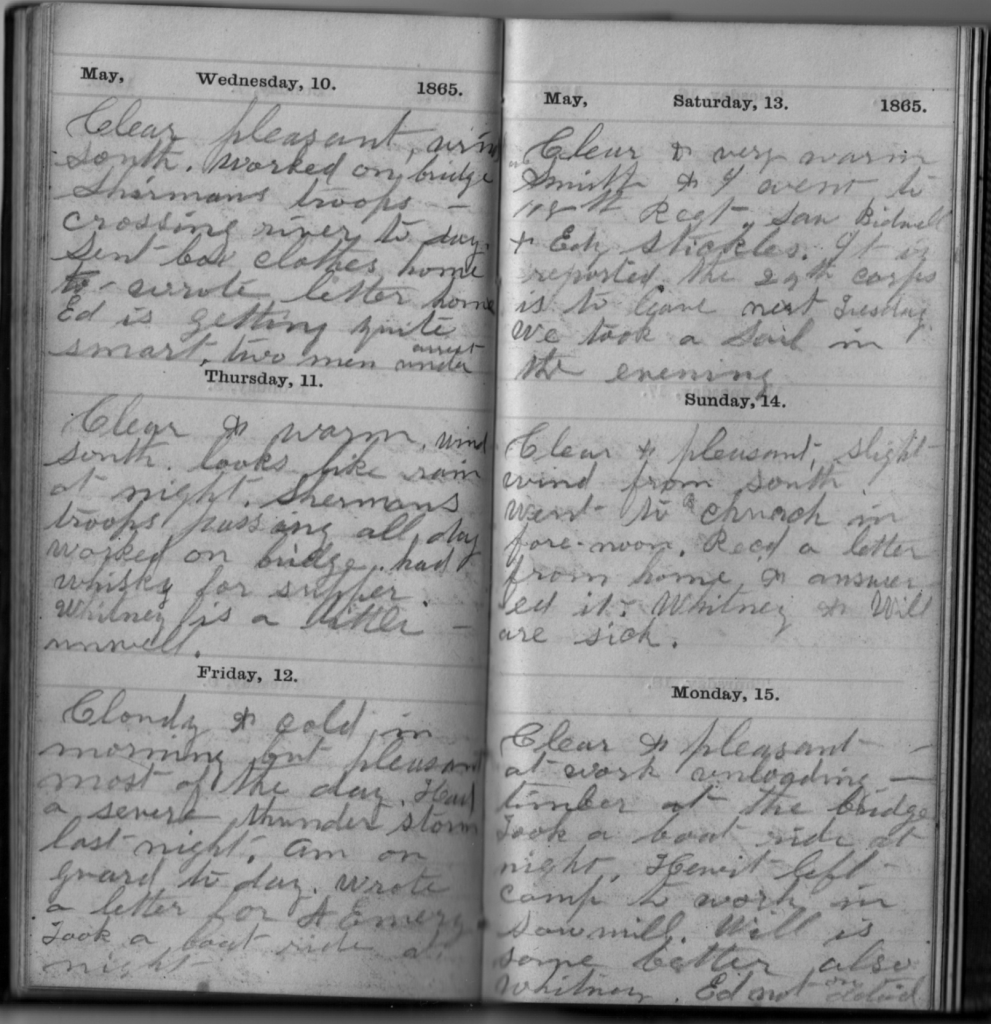 May, Wednesday, 10. 1865.
Clear pleasant, wind
south. worked on bridge
Shermans troops -
crossing river to day.
Sent box clothes home
to- wrote letter home
Ed is getting quite
smart, two men under arrest
Thursday, 11.
Clear & warm, wind
south. looks like rain
at night. Shermans
troops passing all day
worked on bridge. had
whisky for supper.
Whitney is a little -
unwell.
Friday, 12.
Cloudy & cold in
morning but pleasant
most of the day. Had
a severe thunder storm
last night. am on
guard to day. wrote
a letter for A Emery
Took a boat ride at
night
May, Saturday, 13. 1865.
Clear & very warm
Smith & I went to
118th Regt, saw Bidwell
& Ed, Stickles. It is
reported the 24th corps
is to leave next Tuesday
We took a Sail in
the evening
Sunday, 14.
Clear & pleasant, slight
wind from south
went to church in
fore-noon. Recd a letter
from home, & answer
ed it. Whitney & Will
are sick.
Monday, 15.
Clear & pleasant -
at work unloading -
timber at the bridge
Took a boat ride at
night. Hewit left -
camp to work in
sawmill. Will is
some better also
Whitney. Ed not on